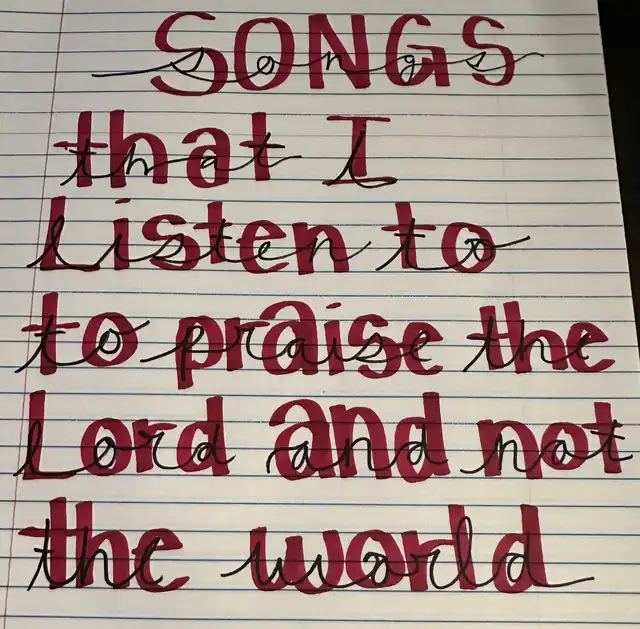 SONGS
that I
Listen to
to praise the
Lord and not
the world